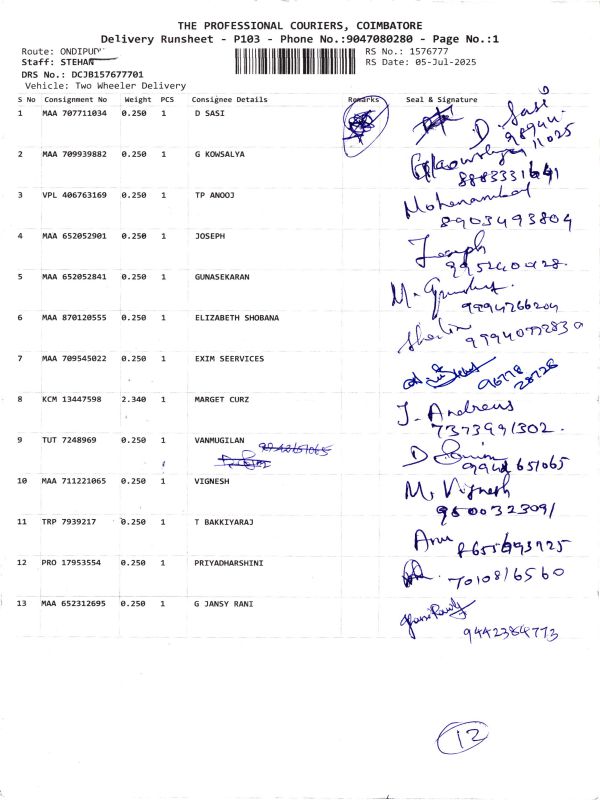 THE PROFESSIONAL COURIERS, COIMBATORE
Delivery Runsheet - P103 - Phone No.:9047080280 - Page No.:1
Route: ONDIPUDUR RS No.: 1576777
Staff: STEHAN RS Date: 05-Jul-2025
DRS No.: DCJB157677701
Vehicle: Two Wheeler Delivery
S No Consignment No Weight PCS Consignee Details Remarks Seal & Signature
1 MAA 707711034 0.250 1 D SASI D. Sasi
2 MAA 709939882 0.250 1 G KOWSALYA
3 VPL 406763169 0.250 1 TP ANOOJ
8903493804
4 MAA 652052901 0.250 1 JOSEPH Joseph
5 MAA 652052841 0.250 1 GUNASEKARAN
9994266204
6 MAA 870120555 0.250 1 ELIZABETH SHOBANA
7 MAA 709545022 0.250 1 EXIM SEERVICES
8 KCM 13447598 2.340 1 MARGET CURZ J. Andrews
7373991302.
9 TUT 7248969 0.250 1 VANMUGILAN
10 MAA 711221065 0.250 1 VIGNESH M. Vignesh
9600323091
11 TRP 7939217 0.250 1 T BAKKIYARAJ Anu
12 PRO 17953554 0.250 1 PRIYADHARSHINI
7010816560
13 MAA 652312695 0.250 1 G JANSY RANI
9442384773
12